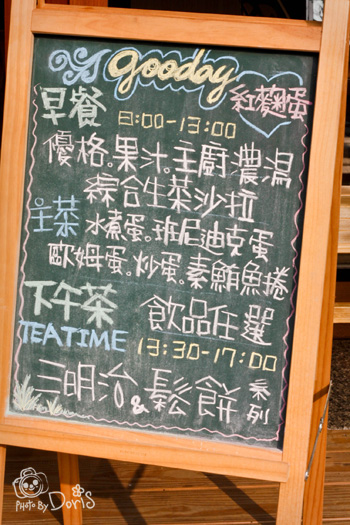 gooday
早餐 紅麴蛋
8:00-13:00
優格。果汁。主廚濃湯
綜合生菜沙拉
主菜 水煮蛋。班尼迪克蛋
歐姆蛋。炒蛋。素鮪魚捲
下午茶 飲品任選
TEATIME 13:30-17:00
三明治&鬆餅系列
PHOTO BY DoriS